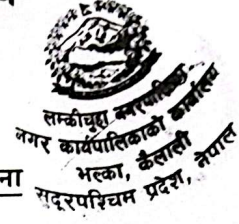 लम्कीचुहा नगरपालिका
नगर कार्यपालिकाको कार्यालय
भल्का, कैलाली
सुदूरपश्चिम प्रदेश, नेपाल
ना